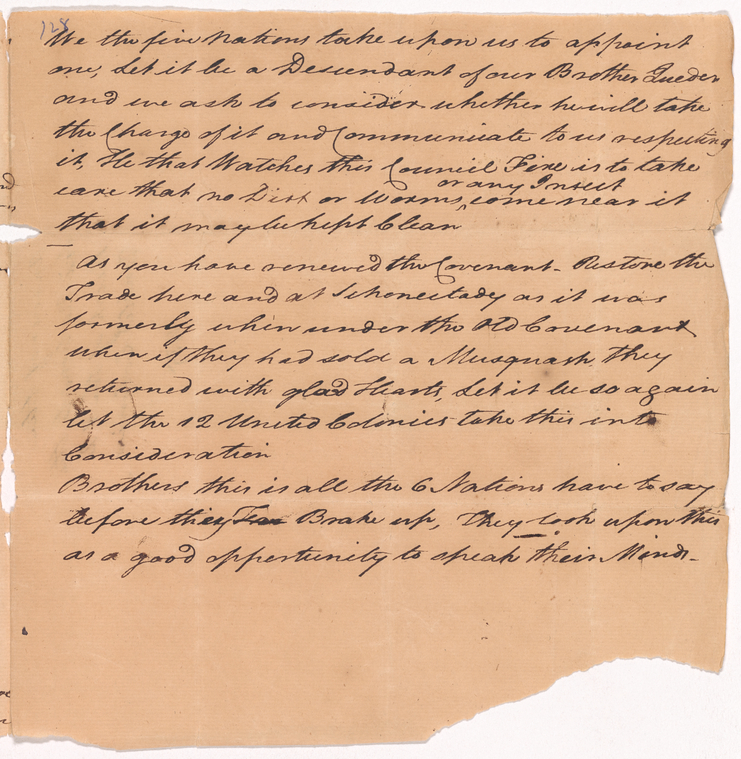 128
We the five Nations take upon us to appoint
one, Let it be a Descendant of our Brother Queder
and we ask to consider whether he will take
the Charge of it and Communicate to us respecting
it, He that Watches this Council Fire is to take
or any Insect
care that no Dirt or Worms, come near it
that it may be kept Clean
As you have renewed the Covenant - Restore the
Trade here and at Schonectady as it was
formerly when under the Old Covenant
when if they had sold a Musquash they
returned with glad Hearts, Let it be so again
let the 12 United Colonies take this into
Consideration
Brothers this is all the 6 Nations have to say
before they Brake up, They look upon this
as a good opportunity to speak their Minds -